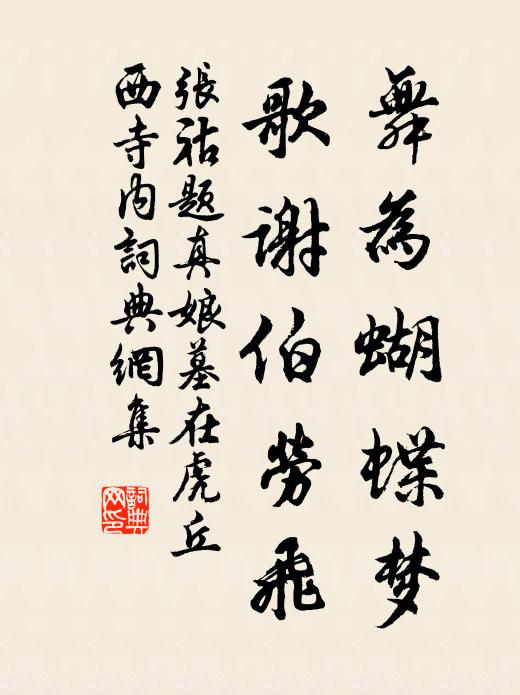 舞為蝴蝶梦
歌謝伯勞飛
張祜題真娘墓在虎丘
西寺内詞典網集
詞典
网印